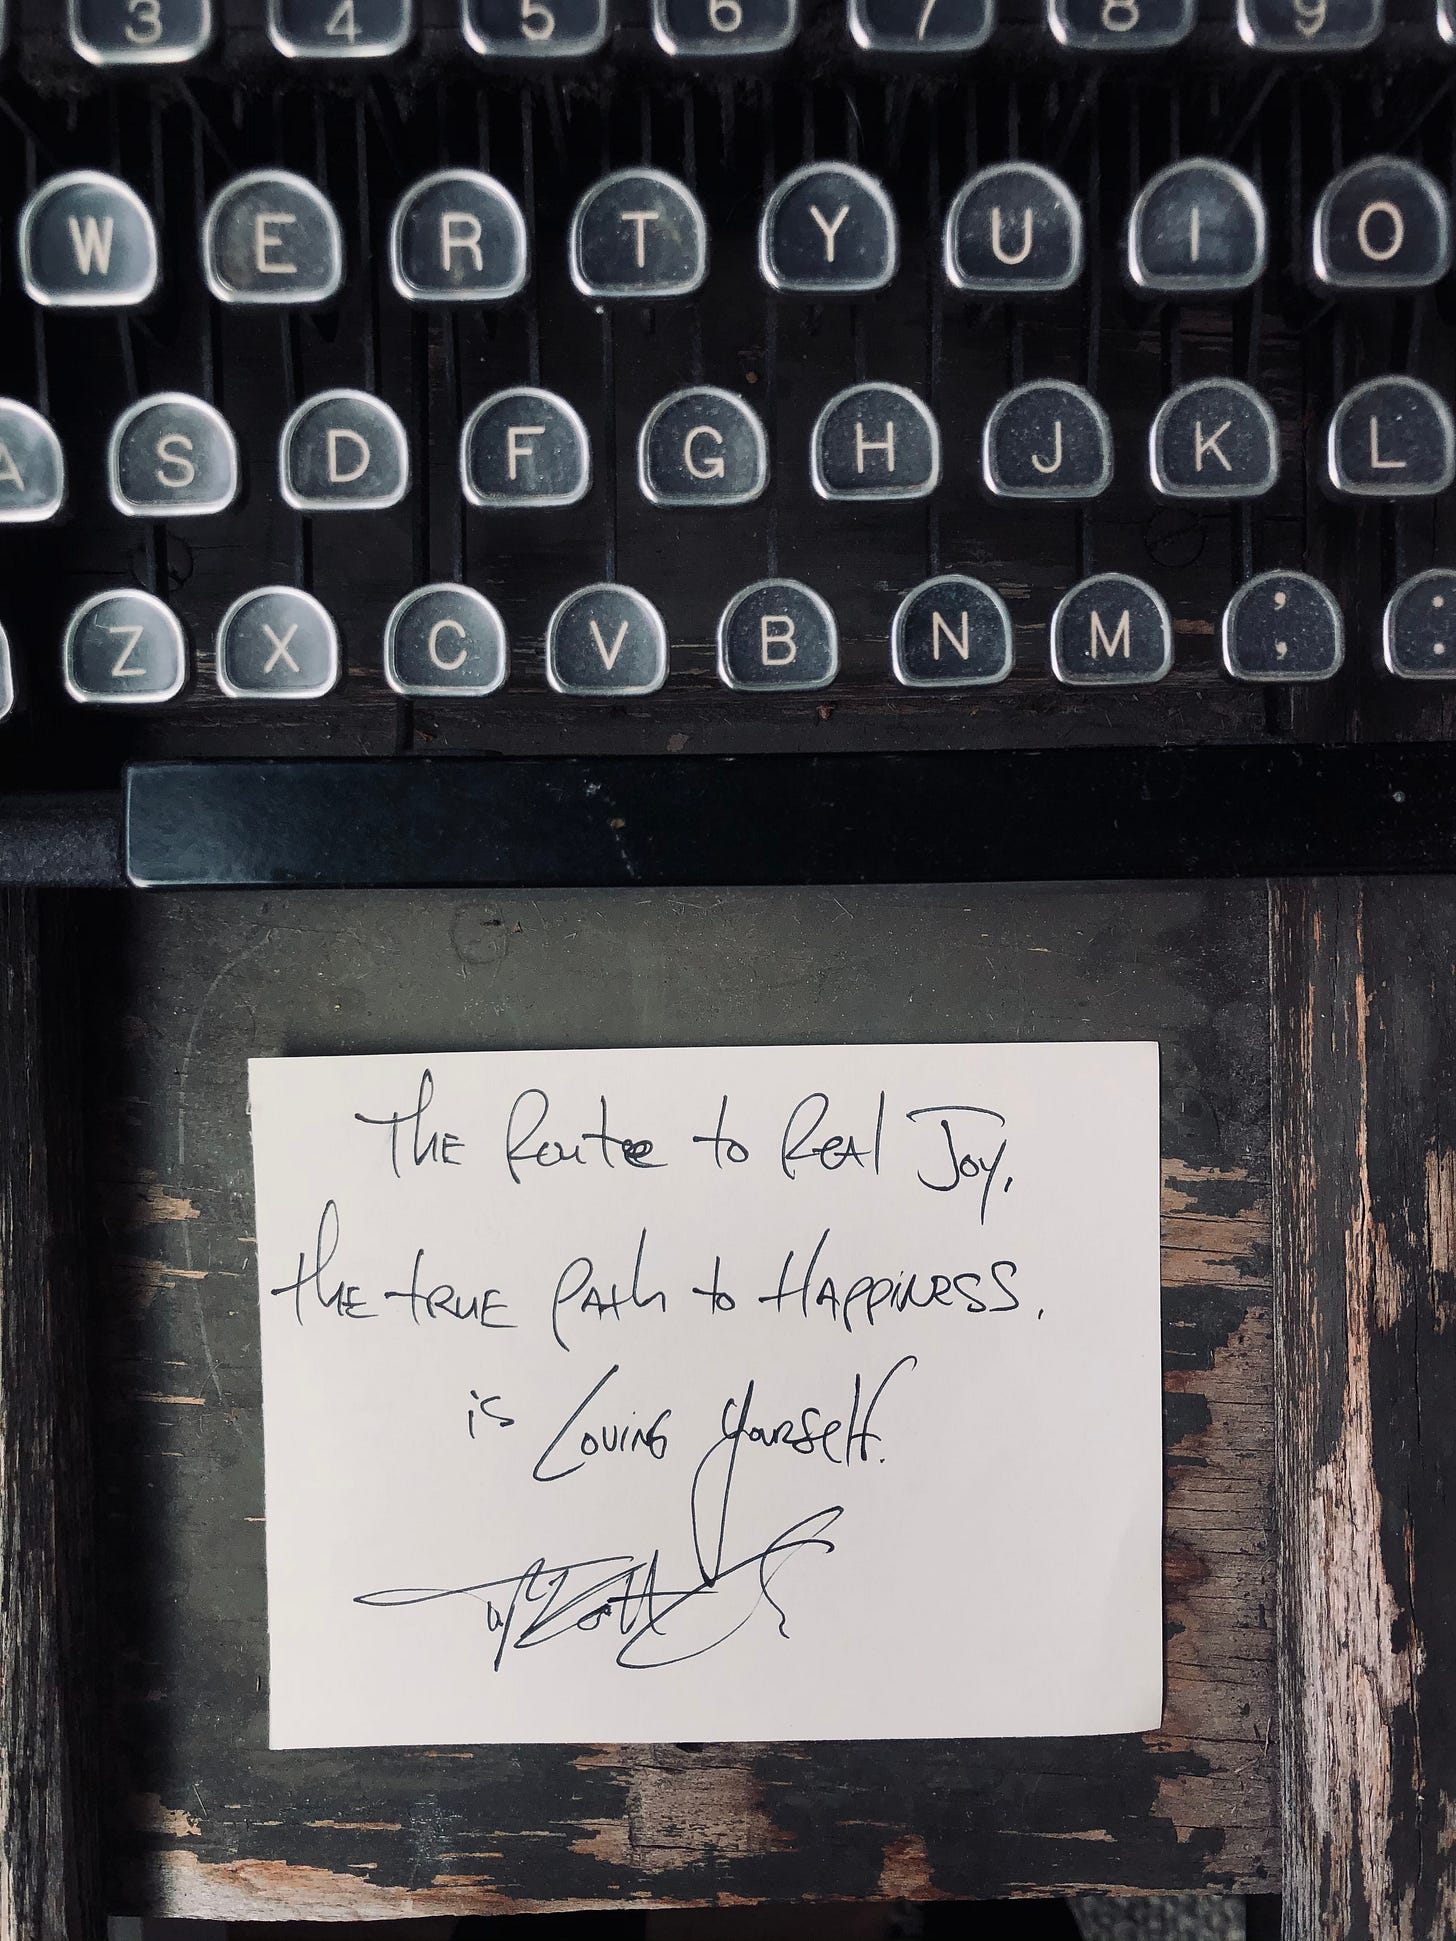 3 4 5 6 7 8 9
W E R T Y U I O
A S D F G H J K L
Z X C V B N M , ; . :
The Route to Real Joy,
the true path to Happiness.
is Loving yourself.